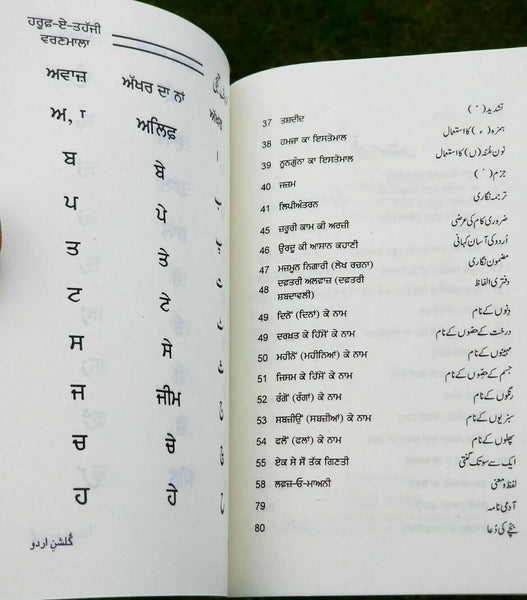 ਹਰੂਫ਼-ਏ-ਤਹੱਜੀ
ਵਰਣਮਾਲਾ
ਅਵਾਜ਼ ਅੱਖਰ ਦਾ ਨਾਂ ਅੱਖਰ
ਅ, ਾ ਅਲਿਫ਼ ا
ਬ ਬੇ ب
ਪ ਪੇ پ
ਤ ਤੇ ت
ਟ ਟੇ ٹ
ਸ ਸੇ ث
ਜ ਜੀਮ ج
ਚ ਚੇ چ
ਹ ਹੇ ح
گلشنِ اردو
37 ਤਸ਼ਦੀਦ تشدید ( ّ )
38 ਹਮਜ਼ਾ ਕਾ ਇਸਤੇਮਾਲ ہمزہ ( ء ) کا استعمال
39 ਨੂਨਗੁੰਨਾ ਕਾ ਇਸਤੇਮਾਲ نون غنہ (ں) کا استعمال
40 ਜਜ਼ਮ جزم ( ْ )
41 ਲਿਪੀਅੰਤਰਨ ترجمہ نگاری
45 ਜ਼ਰੂਰੀ ਕਾਮ ਕੀ ਅਰਜ਼ੀ ضروری کام کی عرضی
46 ਉਰਦੂ ਕੀ ਆਸਾਨ ਕਹਾਣੀ اُردو کی آسان کہانی
47 ਮਜ਼ਮੂਨ ਨਿਗਾਰੀ (ਲੇਖ ਰਚਨਾ) مضمون نگاری
48 ਦਫ਼ਤਰੀ ਅਲਫਾਜ਼ (ਦਫਤਰੀ ਸ਼ਬਦਾਵਲੀ) دفتری الفاظ
49 ਦਿਨੋਂ (ਦਿਨਾਂ) ਕੇ ਨਾਮ دِنوں کے نام
49 ਦਰਖ਼ਤ ਕੇ ਹਿੱਸੋਂ ਕੇ ਨਾਮ درخت کے حصّوں کے نام
50 ਮਹੀਨੋਂ (ਮਹੀਨਿਆਂ) ਕੇ ਨਾਮ مہینوں کے نام
51 ਜਿਸਮ ਕੇ ਹਿੱਸੋਂ ਕੇ ਨਾਮ جسم کے حصّوں کے نام
52 ਰੰਗੋਂ (ਰੰਗਾਂ) ਕੇ ਨਾਮ رنگوں کے نام
53 ਸਬਜ਼ੀਉਂ (ਸਬਜ਼ੀਆਂ) ਕੇ ਨਾਮ سبزیوں کے نام
54 ਫਲੋਂ (ਫਲਾਂ) ਕੇ ਨਾਮ پھلوں کے نام
55 ਏਕ ਸੇ ਸੋਂ ਤੱਕ ਗਿਣਤੀ ایک سے سو تک گنتی
58 ਲਫ਼ਜ਼-ਓ-ਮਾਅਨੀ لفظ و معنی
79 آدمی نامہ
80 بچّے کی دُعا